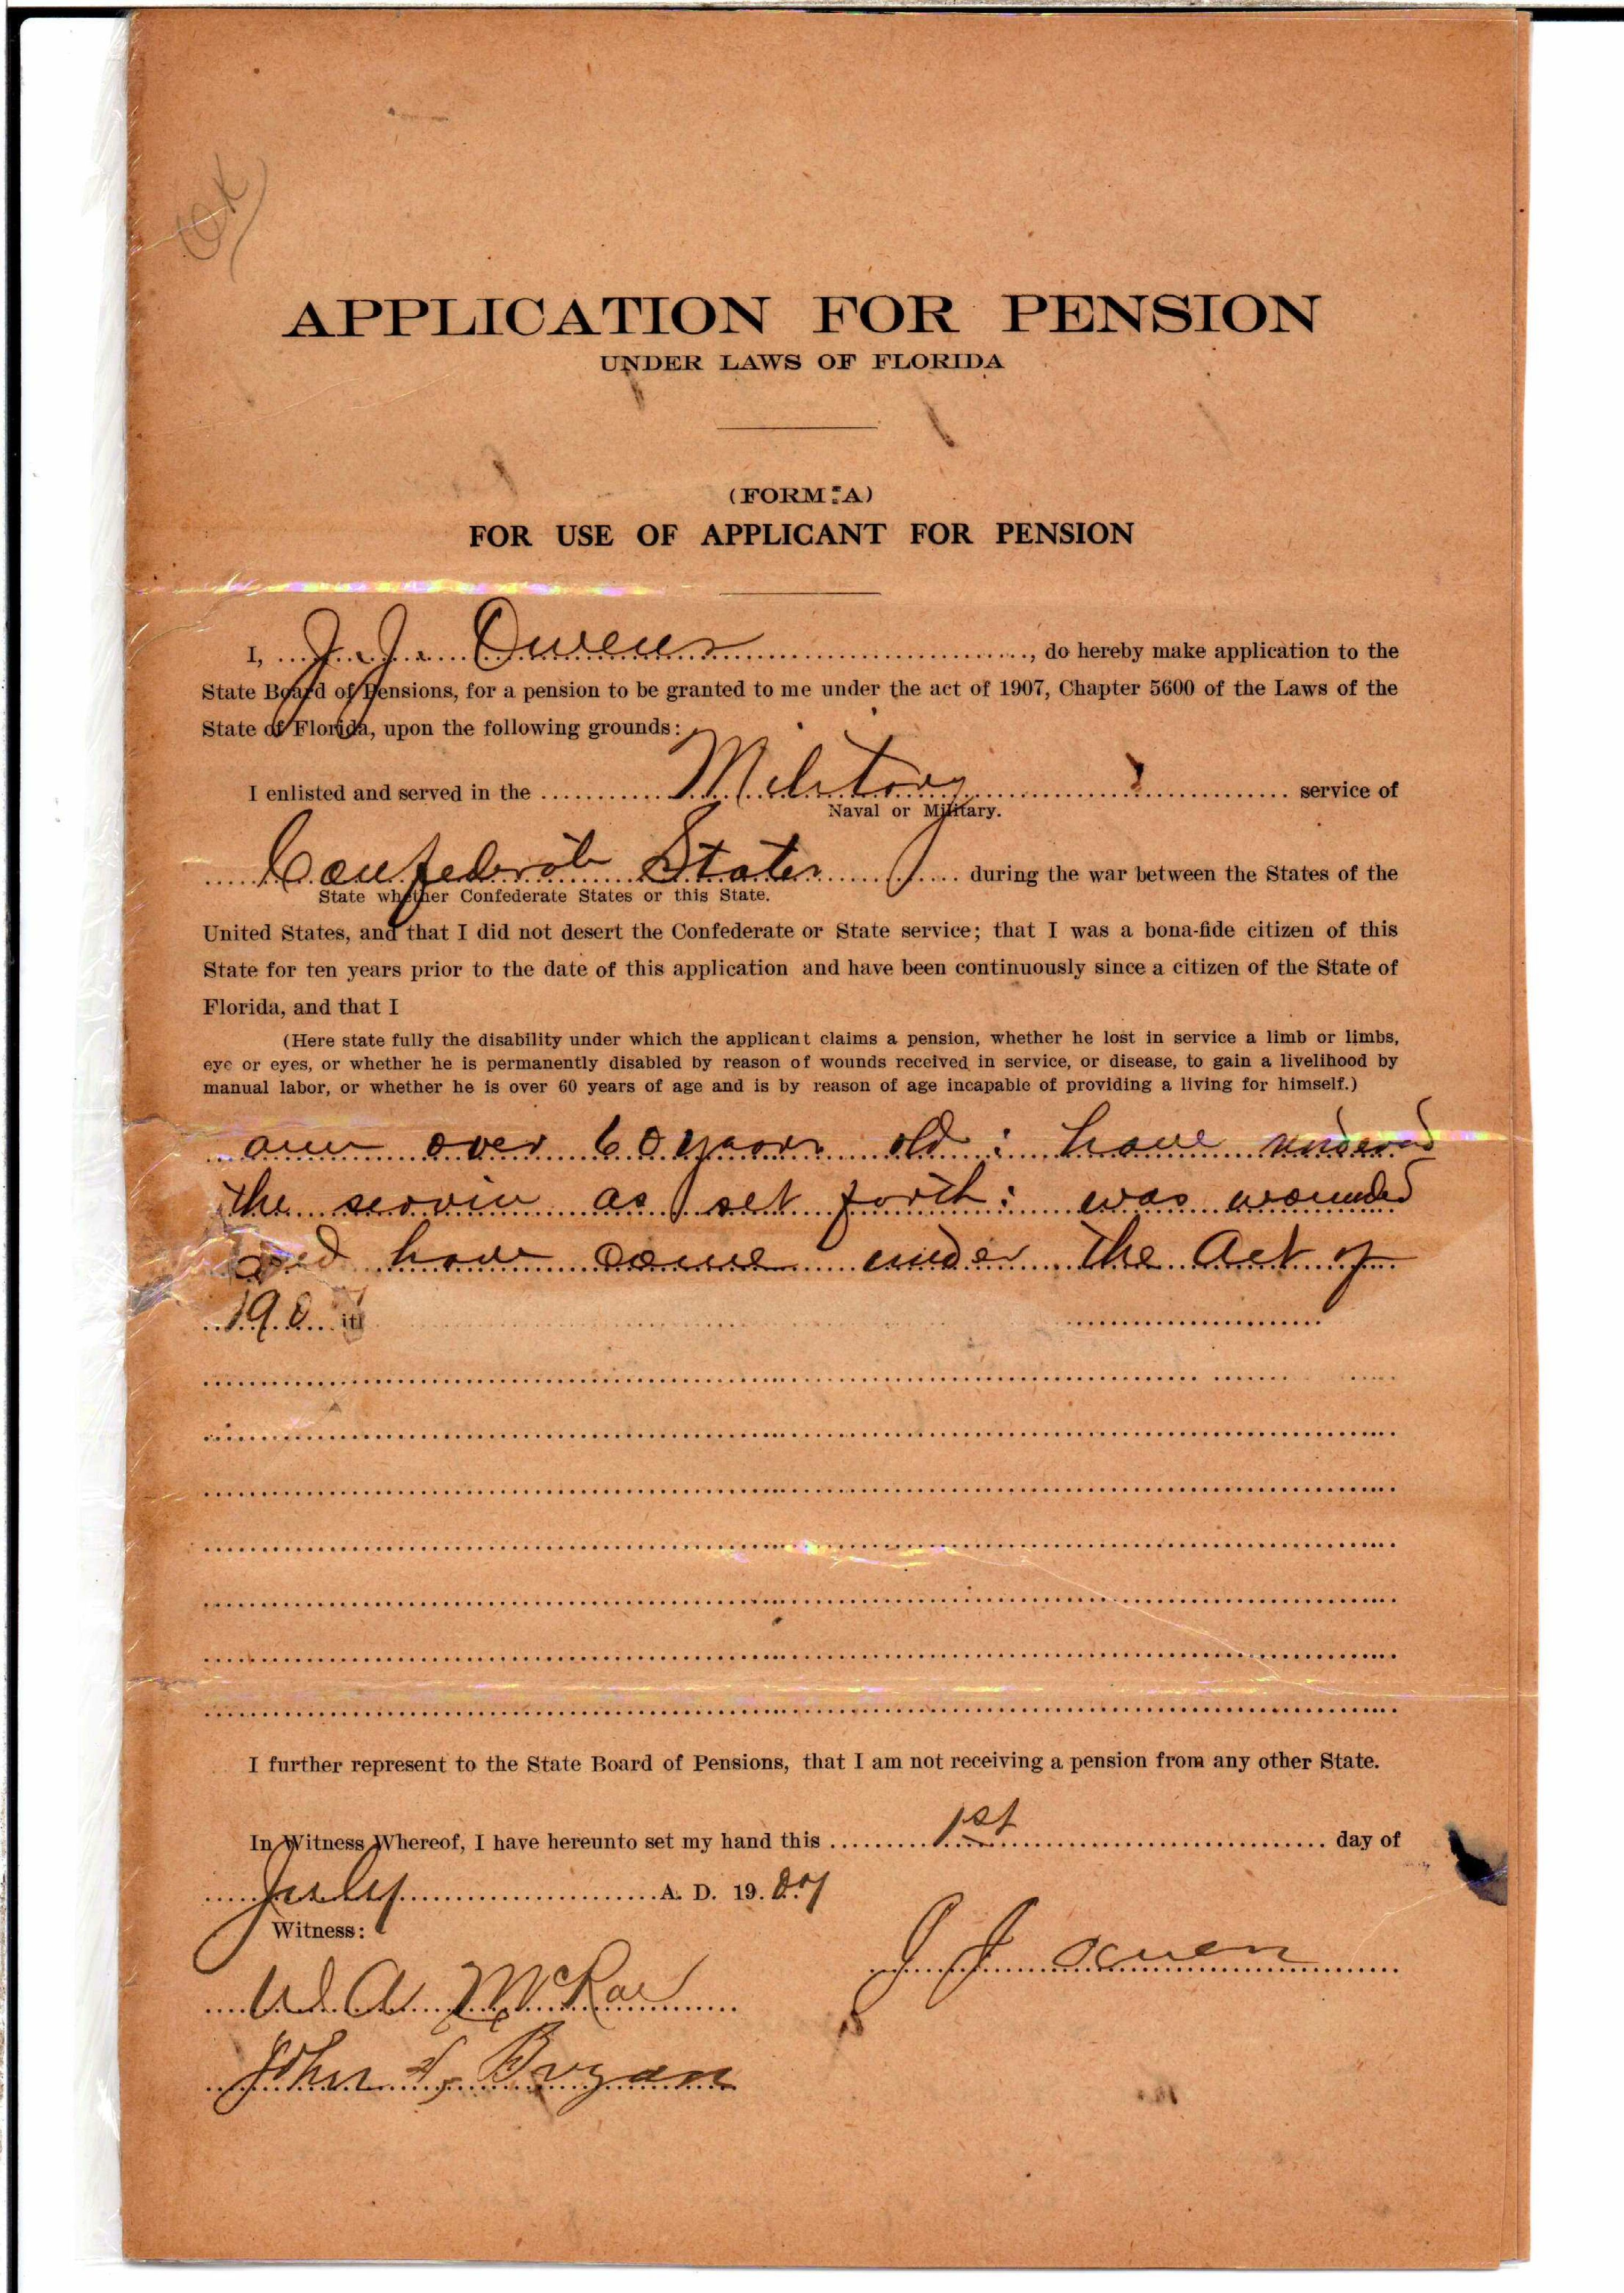 OK
APPLICATION FOR PENSION
UNDER LAWS OF FLORIDA
(FORM A)
FOR USE OF APPLICANT FOR PENSION
I, J. J. Owens, do hereby make application to the
State Board of Pensions, for a pension to be granted to me under the act of 1907, Chapter 5600 of the Laws of the
State of Florida, upon the following grounds:
I enlisted and served in the Military service of
Naval or Military.
Confederate States during the war between the States of the
State whether Confederate States or this State.
United States, and that I did not desert the Confederate or State service; that I was a bona-fide citizen of this
State for ten years prior to the date of this application and have been continuously since a citizen of the State of
Florida, and that I
(Here state fully the disability under which the applicant claims a pension, whether he lost in service a limb or limbs,
eye or eyes, or whether he is permanently disabled by reason of wounds received in service, or disease, to gain a livelihood by
manual labor, or whether he is over 60 years of age and is by reason of age incapable of providing a living for himself.)
am over 60 years old: have
the service as set forth: was wounded
and have come under the Act of
190
I further represent to the State Board of Pensions, that I am not receiving a pension from any other State.
In Witness Whereof, I have hereunto set my hand this 1st day of
July A. D. 1907
Witness:
J J Owen
W. A. McRae
John Bryan